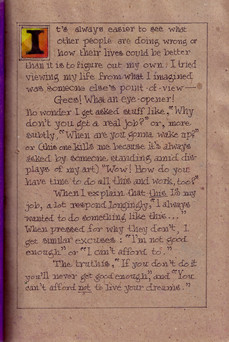 It's always easier to see what
other people are doing wrong or
how their lives could be better
than it is to figure out my own. I tried
viewing my life from what I imagined
was someone else's point-of-view—
Geez! What an eye-opener!
No wonder I get asked stuff like, "Why
don't you get a real job?" or, more
subtly, "When are you gonna wake up?"
or (this one kills me because it's always
asked by someone standing amid dis-
plays of my art) "Wow! How do you
have time to do all this and work, too?"
When I explain that this IS my
job, a lot respond longingly, "I always
wanted to do something like this..."
When pressed for why they don't, I
get similar excuses: "I'm not good
enough" or "I can't afford to."
The truth is, "If you don't do it
you'll never get good enough," and "You
can't afford not to live your dreams."